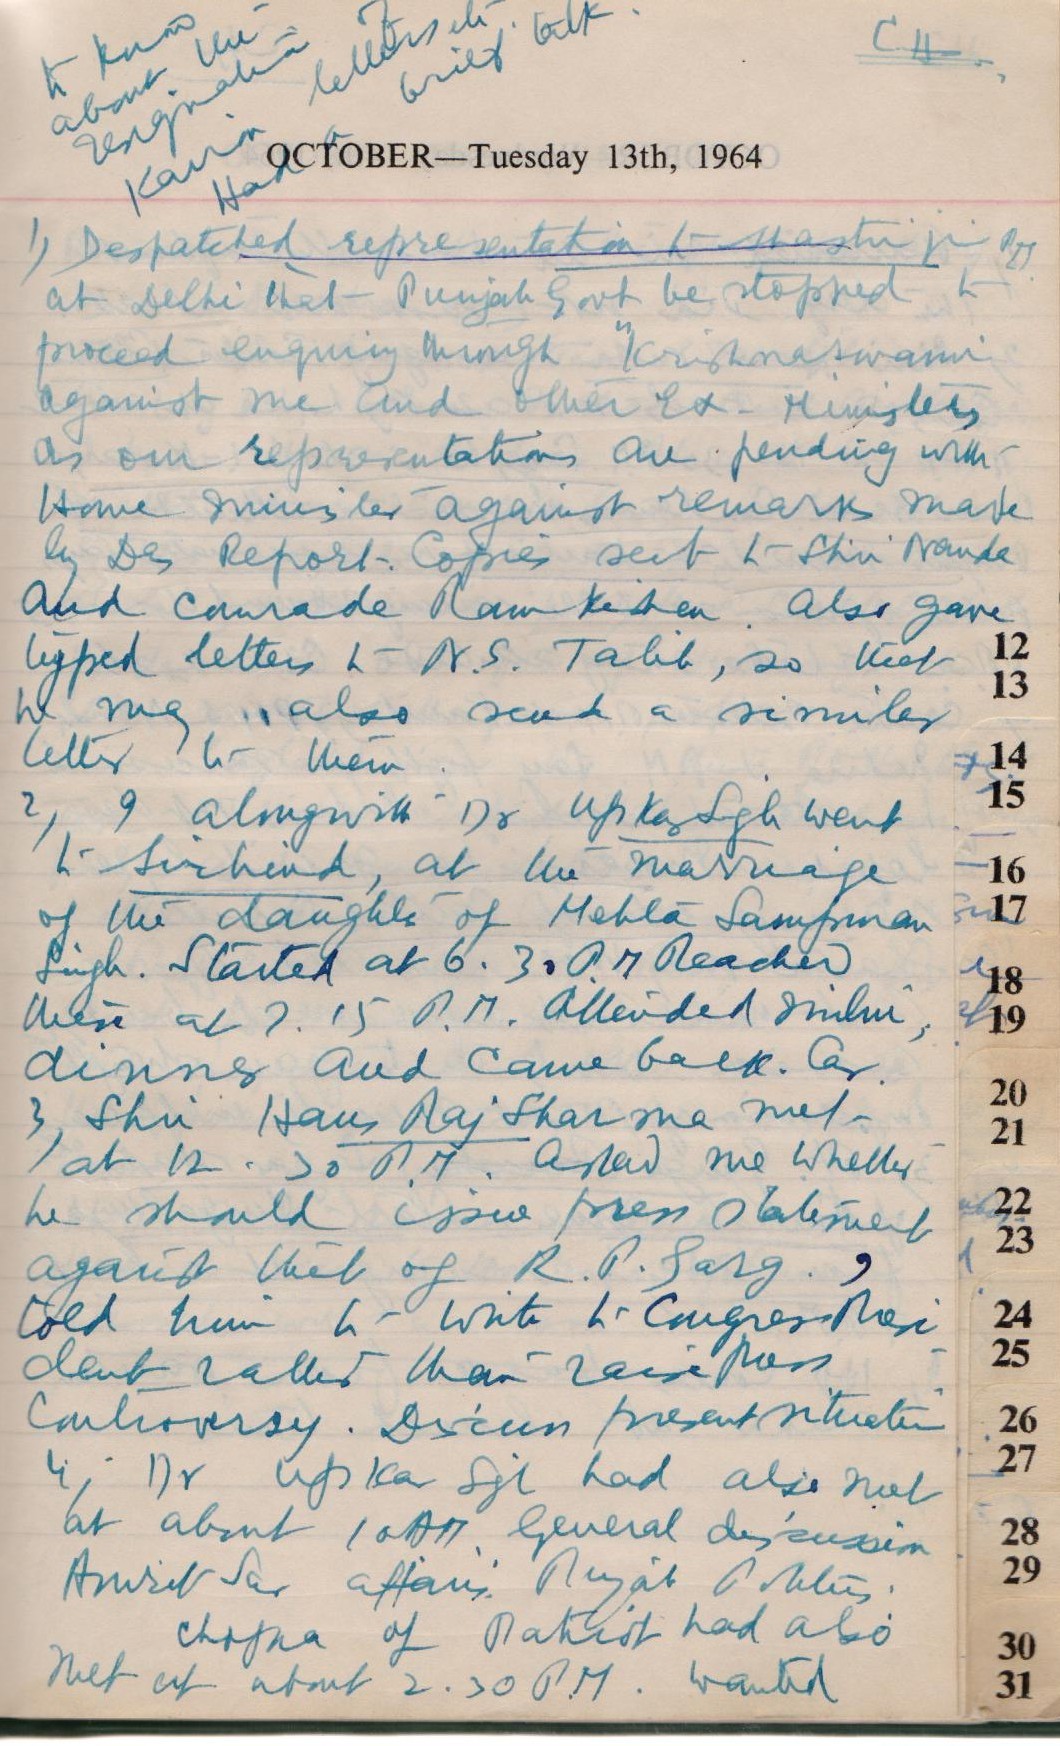 CH
to know
about the
resignation of
Kairon letters etc.
Had a brief talk.
OCTOBER—Tuesday 13th, 1964
1) Despatched representation to Shastri ji PM
at Delhi that Punjab Govt be stopped to
proceed enquiry through "Krishnaswami
against me and other Ex-Ministers
as our representations are pending with
Home Minister against remarks made
by Das Report. Copies sent to Shri Nanda
and comrade Ram Kishen. Also gave
typed letters to N.S. Talib, so that
he may also send a similar
letter to them.
2, I alongwith Dr Upkar Sigh went
to Sirhind, at the marriage
of the daughter of Mehta
Singh. Started at 6.30 P.M Reached
there at 7.15 P.M. Attended Milni,
dinner and came back. Car.
3, Shri Hans Raj Sharma met
at 12.30 P.M. Asked me whether
he should issue press statement
against that of R.P. Garg. I
told him to write to Congress Presi
dent rather than raise press
Controversy. Discuss present situation
4, Dr Upkar Sgh had also met
at about 10 AM. General discussion
Amritsar affairs. Punjab Politics.
Chopra of Patriot had also
met at about 2.30 P.M. wanted
12
13
14
15
16
17
18
19
20
21
22
23
24
25
26
27
28
29
30
31